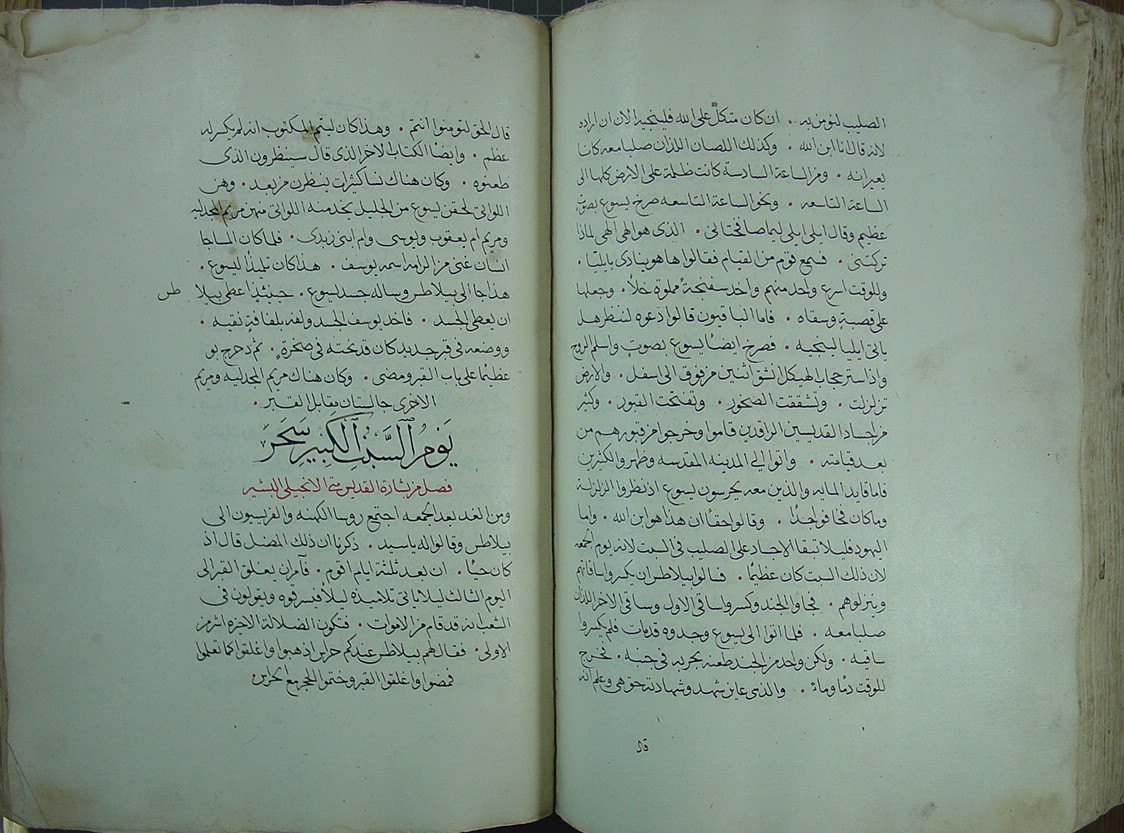 الصليب لنؤمن به . ان كان متكل على الله فلينجيه الان ان اراده
لانه قال انا ابن الله . وكذلك اللصان اللذان صلبا معه كانا
يعيرانه . ومن الساعة السادسة كانت ظلمة على الارض كلها الى
الساعة التاسعه . ونحو الساعة التاسعه صرخ يسوع بصوت
عظيم وقال ايلى ايلى ليما صافختانى . الذى هو الهى الهى لماذا
تركتنى . فسمع قوم من القيام فقالوا ها هوينادى بايليا .
وللوقت اسرع واحد منهم واخذ سفنجة مملوة خلاً . وجعلها
على قصبة وسقاه . فاما الباقيون قالوا دعوه لننظر هل
ياتى ايليا لينجيه . فصرخ ايضاً يسوع بصوت واسلم الروح
واذا ستر حجاب الهيكل انشق اثنين من فوق الى سفل . والارض
تزلزلت . وتشققت الصخور . وتفتحت القبور . وكثير
من اجساد القديسين الراقدين قاموا وخرجوا من قبورهم من
بعد قيامته . واتوا الي المدينه المقدسه وظهروا لكثرين
فاما قايد المايه والذين معه يحرسون يسوع اذ نظروا الزلزلة
وما كان فخافوا جداً . وقالوا حقاً ان هذا هو ابن الله . واما
اليهود فليلا تبقا الاجساد على الصليب فى السبت لانه يوم الجمعه
لان ذلك السبت كان عظيماً . فسالوا بيلاطس ان يكسروا ساقاتهم
وينزلوهم . فجاوا الجند وكسروا ساقى الاول وساقى الاخر اللذان
صلبا معه . فلما اتوا الى يسوع وجدوه قد مات فلم يكسروا
ساقيه . ولكن واحد من الجند طعنه بحربه فى جنبه . فخرج
للوقت دمٌ وماء . والذى عاين شهد وشهادته حق هى وعلم انه
قال
قال الحق لتومنوا انتم . وهذا كان ليتم المكتوب انه لم يكسر له
عظم . وايضاً الكتاب الاخر الذى قال سينظرون الذى
طعنوه . وكان هناك نسا كثيرات ينظرن من بعد . وهن
اللواتى لحقن يسوع من الجليل يخدمنه اللواتى منهن مريم المجدليه
ومريم ام يعقوب ويوسى وام ابنى زبدى . فلما كان المسا جا
انسان غنى من الرامه اسمه يوسف . هذا كان تلميذا ليسوع .
هذا جا الى بيلاطس وساله جسد يسوع . حينئذٍ اعطى بيلا
طس
ان يعطى الجسد . فاخد يوسف الجسد ولفه بلفافةٍ نقيه .
ووضعه فى قبر جديد كان قد نحته فى صخرة . ثم دحرج
عظيماً على باب القبر ومضى . وكان هناك مريم المجدليه ومريم
الاخرى جالستان مقابل القبر .
يَوْمُ ٱلسَّبْتِ ٱلْكَبِيرِ سَحَر
فصل من بشارة القديس متى الانجيلى البشير
ومن الغد بعد الجمعه اجتمع روسا الكهنه والفريسيون الى
بيلاطس وقالوا له ياسيد . ذكرنا ان ذلك المضل قال اذ
كان حيًّا . ان بعد ثلثة ايام اقوم . فامر ان يغلق القبر الى
اليوم الثالث ليلا ياتى تلاميذه ليلاً فيسرقوه ويقولون فى
الشعب انه قد قام من الاموات . فتكون الضلالة الاخره اشر من
الاولى . فقال لهم بيلاطس عندكم حراس اذهبوا واغلقوا كما تعلموا
فمضوا واغلقوا القبر وختموا الحجر مع الحراس